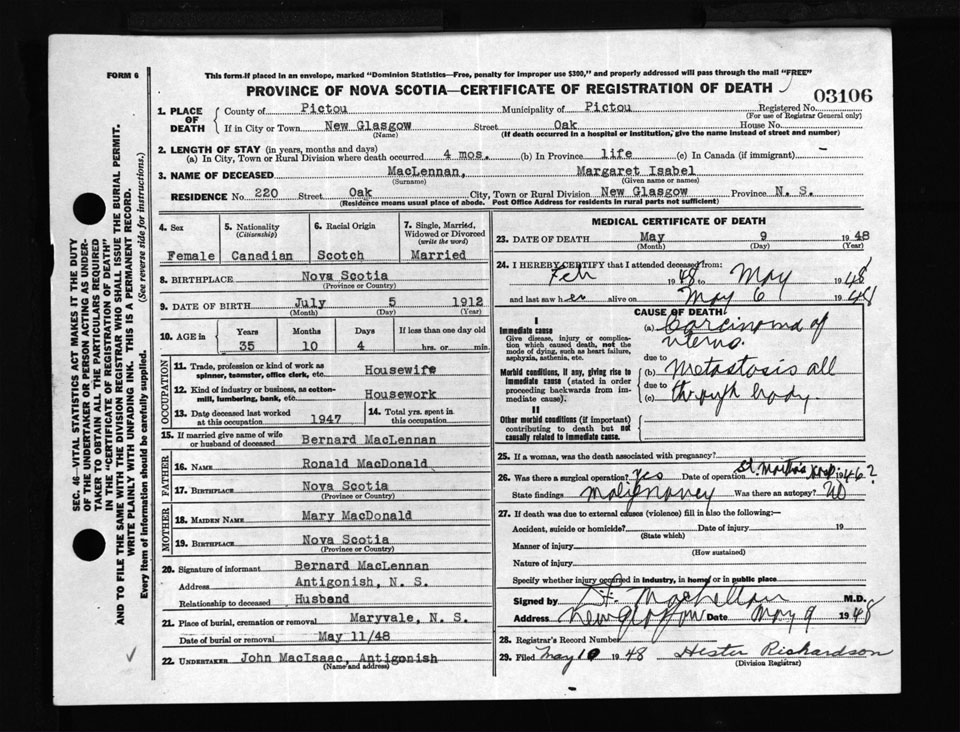 FORM 6
This form if placed in an envelope, marked "Dominion Statistics—Free, penalty for improper use $300," and properly addressed will pass through the mail "FREE"
PROVINCE OF NOVA SCOTIA—CERTIFICATE OF REGISTRATION OF DEATH
03106
1. PLACE OF DEATH County of Pictou Municipality of Pictou Registered No.
(For use of Registrar General only)
If in City or Town New Glasgow Street Oak House No.
(Name) (If death occurred in a hospital or institution, give the name instead of street and number)
2. LENGTH OF STAY (in years, months and days)
(a) In City, Town or Rural Division where death occurred 4 mos. (b) In Province life (c) In Canada (if immigrant) —
3. NAME OF DECEASED MacLennan, Margaret Isabel
(Surname) (Given name or names)
RESIDENCE No. 220 Street Oak City, Town or Rural Division New Glasgow Province N. S.
(Residence means usual place of abode. Post Office Address for residents in rural parts not sufficient)
4. Sex 5. Nationality (Citizenship) 6. Racial Origin 7. Single, Married, Widowed or Divorced (write the word)
Female Canadian Scotch Married
8. BIRTHPLACE Nova Scotia
(Province or Country)
9. DATE OF BIRTH July 5 1912
(Month) (Day) (Year)
10. AGE in Years Months Days If less than one day old
35 10 4 hrs. or min.
OCCUPATION
11. Trade, profession or kind of work as spinner, teamster, office clerk, etc. Housewife
12. Kind of industry or business, as cotton-mill, lumbering, bank, etc. Housework
13. Date deceased last worked at this occupation 1947 14. Total yrs. spent in this occupation
15. If married give name of wife or husband of deceased Bernard MacLennan
FATHER
16. NAME Ronald MacDonald
17. BIRTHPLACE Nova Scotia
(Province or Country)
MOTHER
18. MAIDEN NAME Mary MacDonald
19. BIRTHPLACE Nova Scotia
(Province or Country)
20. Signature of informant Bernard MacLennan
Address Antigonish, N. S.
Relationship to deceased Husband
21. Place of burial, cremation or removal Maryvale, N. S.
Date of burial or removal May 11/48
22. UNDERTAKER John MacIsaac, Antigonish
(Name and address)
MEDICAL CERTIFICATE OF DEATH
23. DATE OF DEATH May 9 1948
(Month) (Day) (Year)
24. I HEREBY CERTIFY that I attended deceased from:
Feb 1948 to May 1948
and last saw her alive on May 6 1948
CAUSE OF DEATH
I
Immediate cause
Give disease, injury or complication which caused death, not the mode of dying, such as heart failure, asphyxia, asthenia, etc.
(a) Carcinoma of
uterus.
due to
Morbid conditions, if any, giving rise to immediate cause (stated in order proceeding backwards from immediate cause).
(b) Metastosis all
due to
(c) through body.
II
Other morbid conditions (if important) contributing to death but not causally related to immediate cause.
25. If a woman, was the death associated with pregnancy?
26. Was there a surgical operation? Yes Date of operation St. Martha's Hosp. 1946?
State findings Malignancy Was there an autopsy? No
27. If death was due to external causes (violence) fill in also the following:—
Accident, suicide or homicide? Date of injury 19
(State which)
Manner of injury
(How sustained)
Nature of injury
Specify whether injury occurred in industry, in home or in public place
Signed by M.D.
Address New Glasgow Date May 9 1948
28. Registrar's Record Number
29. Filed May 10 1948 Hester Richardson
(Division Registrar)
SEC. 46—VITAL STATISTICS ACT MAKES IT THE DUTY
OF THE UNDERTAKER OR PERSON ACTING AS UNDER-
TAKER TO OBTAIN ALL THE PARTICULARS REQUIRED
IN THE "CERTIFICATE OF REGISTRATION OF DEATH"
AND TO FILE THE SAME WITH THE DIVISION REGISTRAR WHO SHALL ISSUE THE BURIAL PERMIT.
WRITE PLAINLY WITH UNFADING INK. THIS IS A PERMANENT RECORD.
Every item of information should be carefully supplied. (See reverse side for instructions.)